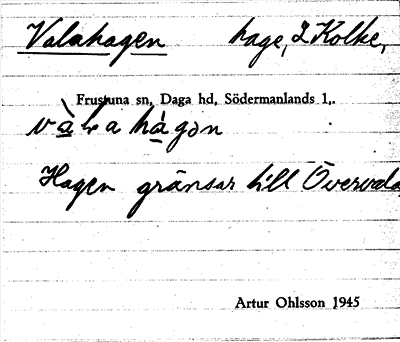 Valahagen hage, 2 Kolke,
Frustuna sn, Daga hd, Södermanlands l,.
Hagen gränsar till Övervala
Artur Ohlsson 1945